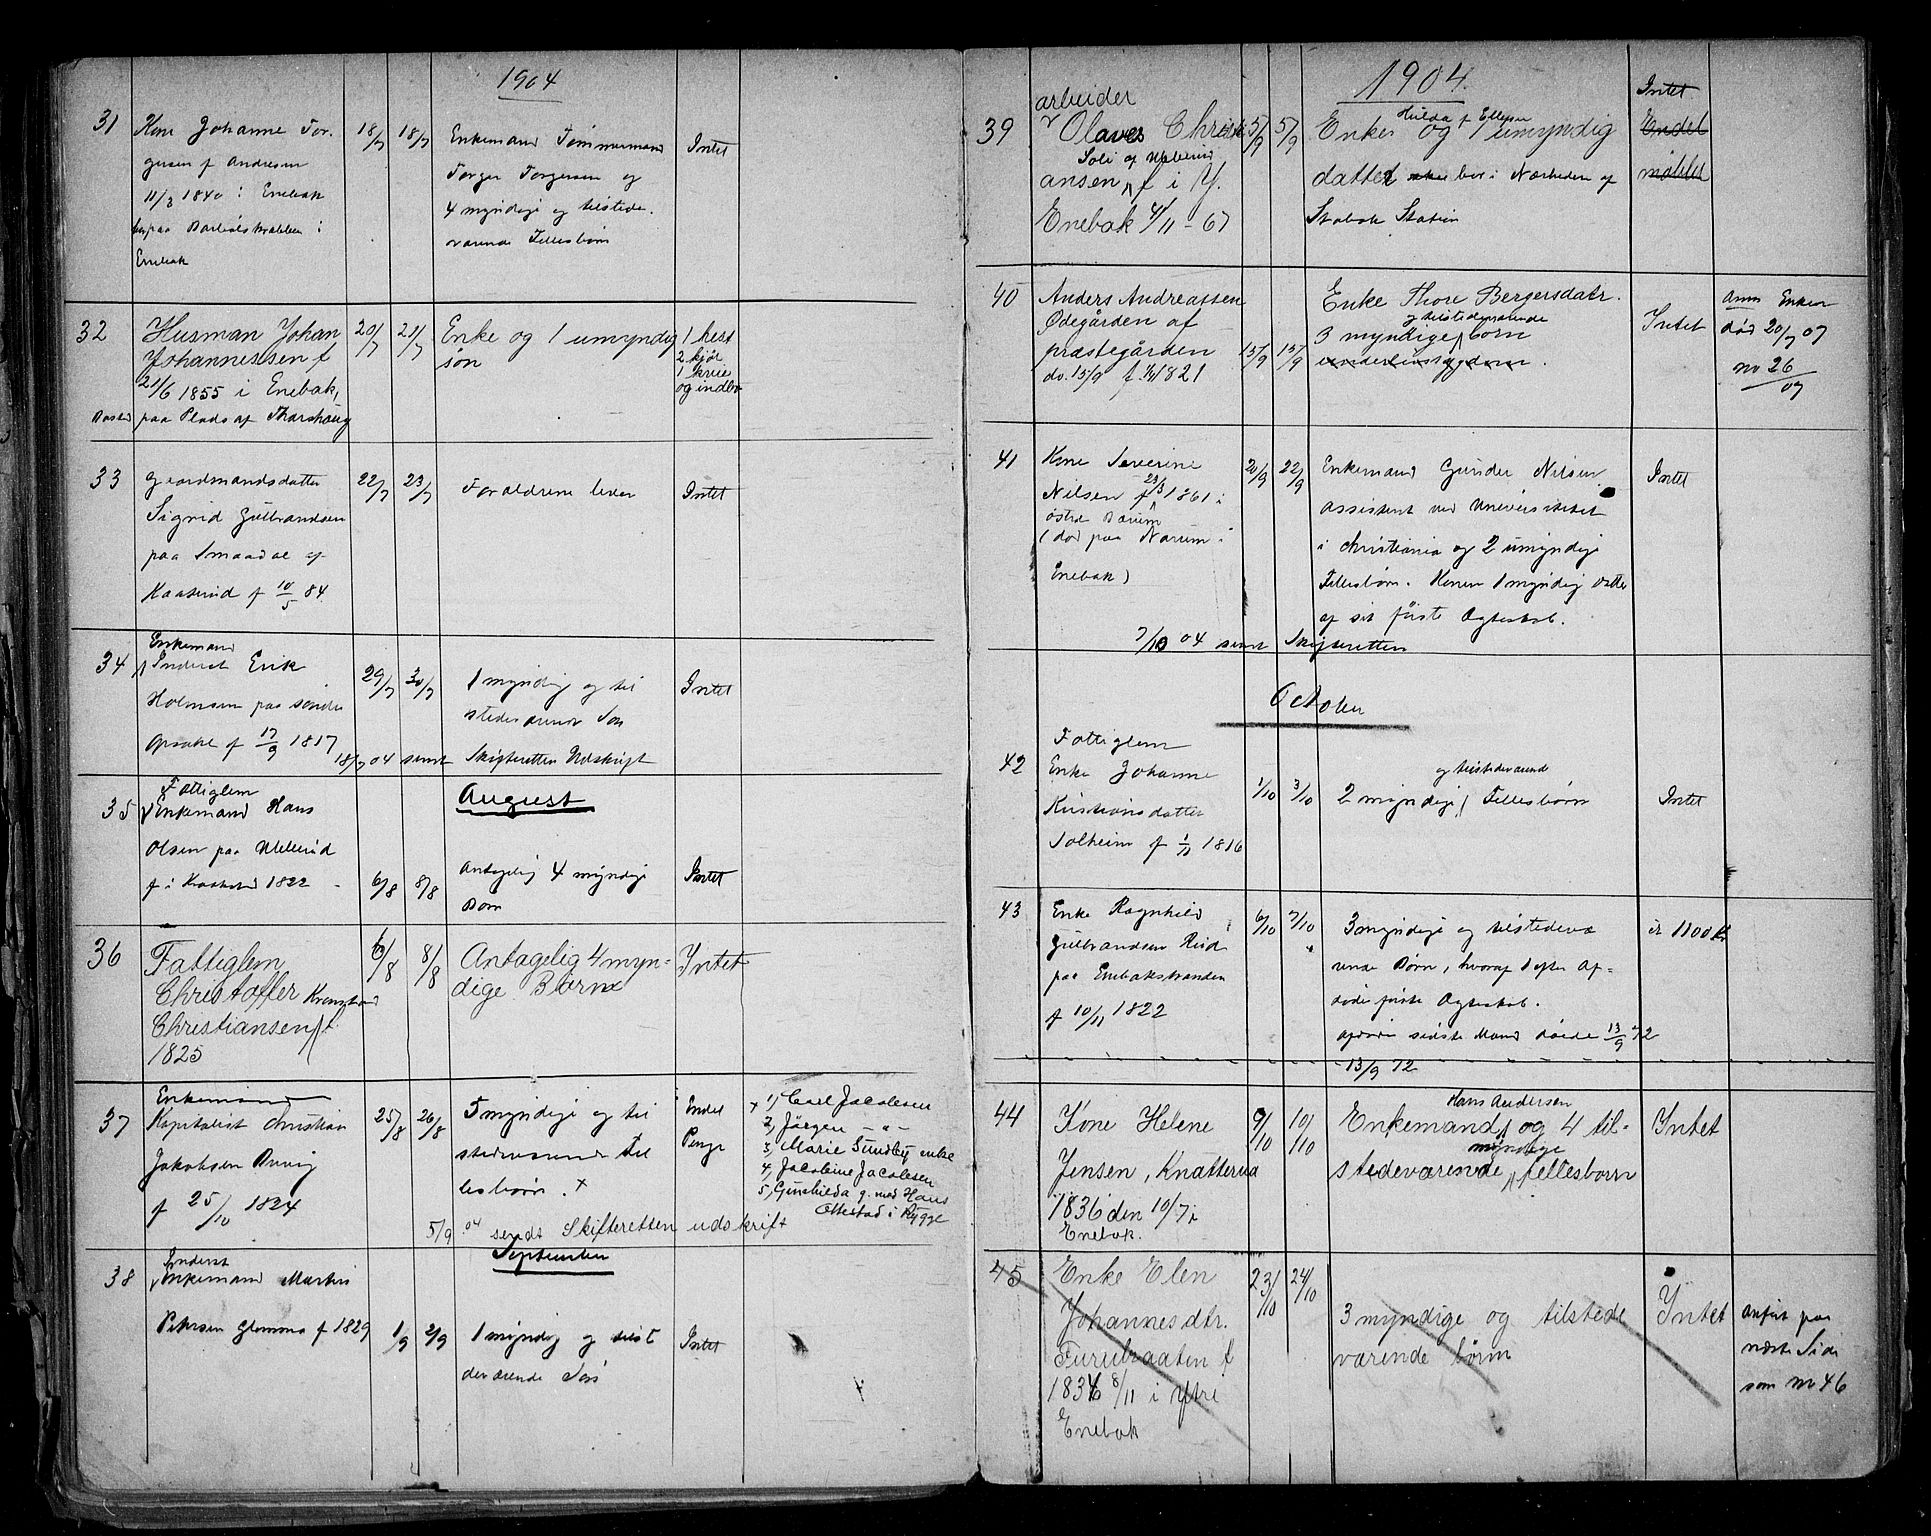 1904
31 Kone Johanne Tor- 18/7 18/7 Enkemand Tømmermand Intet
gersen f Andresen Torger Torgersen og
11/3 1840 i Enebak 4 myndige og tilstede-
paa i værende Fellesbørn
Enebak
32 Husman Johan 20/7 21/7 Enke og 1 umyndig 1 hest
Johannessen f søn 2 kjør
21/6 1855 i Enebak, 1 kvie
paa Plads af og indbo
33 Gaardmandsdatter 22/7 23/7 Forældrene lever Intet
Sigrid Gulbrandsen
paa Smaadal af
f 10/5 84
Enkemand
34 Inderst Erik 29/7 30/7 1 myndig og til Intet
Holmsen paa søndre stedeværende Søn
Opsahl f 17/9 1817
18/7 04 sendt Skifteretten Udskrift
Fattiglem August
35 Enkemand Hans
Olsen paa Antagelig 4 myndige Intet
f i Kraakstad 1822 6/8 8/8 Børn
36 Fattiglem 6/8 8/8 Antagelig 4 myn- Intet
Christoffer dige Børn
Christiansen f.
1825
Enkemand
37 Kapitalist Christian 25/8 26/8 5 myndige og til Endel + 1) Carl Jacobsen
Jakobsen stedeværende Fel Penge 2, Jörgen - " -
f 25/10 1824 lesbørn. + 3, Marie Sundby enke
4, Jacobine Jacobsen
5, Gunhilda g. med Hans
Ottestad i Rygge
5/9 04 sendt Skifteretten udskrift
Inderst September
38 Enkemand Martin
Petersen Glomma f 1829 1/9 2/9 1 myndig og tilst Intet
deværende Søn
1904.
arbeider Intet
39 Olaves Christi 5/9 5/9 Enke Hulda f Ellefsen og 1 umyndig Endel
ansen, f i Y. datter bor i Nærheden af møbler
Enebak 4/11 - 67 Stabæk Station
40 Anders Andreassen Enke Thore Bergersdatr. Intet Anm Enken
Ødegården af 3 myndige og tilstedeværende børn død 20/7 07
præstegården 15/9 15/9 no 26/07
dv. 15/9 f 1821
41 Kone Severine 20/9 22/9 Enkemand Gunder Nilsen Intet
Nilsen f 23/3 1861 i assistent ved Universitetet
østre Bærum i Christiania og 2 umyndige
(død paa Narum i Fellesbørn. Konen 1 myndig datter
Enebak) af sit første Ægteskab.
7/10 04 sendt Skifteretten
October
Fattiglem
42 Enke Johanne 1/10 3/10 2 myndige og tilstedeværend Fellesbørn Intet
Kristiansdatter
Solheim f 1816
43 Enke Ragnhild 6/10 7/10 3 myndige og tilstedevæ ir 1100 Kr
Gulbrandsen Riid rende Børn, hvoraf 1 efter af-
paa Enebakstranden døde første Ægteskab.
f 10/11 1822 afdøde sidste Mand døde 13/9 72
13/9 72
44 Kone Helene 9/10 10/10 Enkemand Hans Andersen og 4 til- Intet
Jensen, Knatterud stedeværende myndige fellesbørn
1836 den 10/7 i
Enebak.
45 Enke Elen 23/10 24/10 3 myndige og tilstede Intet anført paa
Johannesdtr. værende børn næste Side
Furubraaten f som no 46
1836 8/11 i Ytre
Enebak